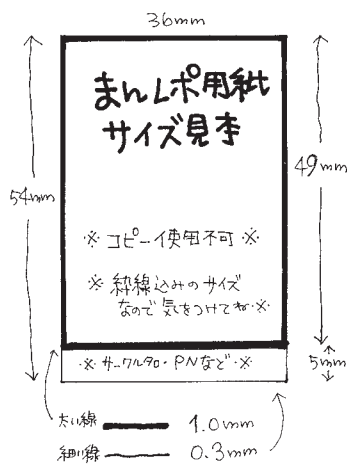 36mm
まんレポ用紙
サイズ見本
49mm
54mm
※ コピー使用不可 ※
※ 枠線込みのサイズ
なので気をつけてね※
※サークル名・PNなど※
5mm
太い線 1.0mm
細い線 0.3mm